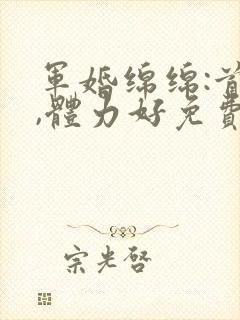 軍婚綿綿:首
,體力好免費
宗光啓